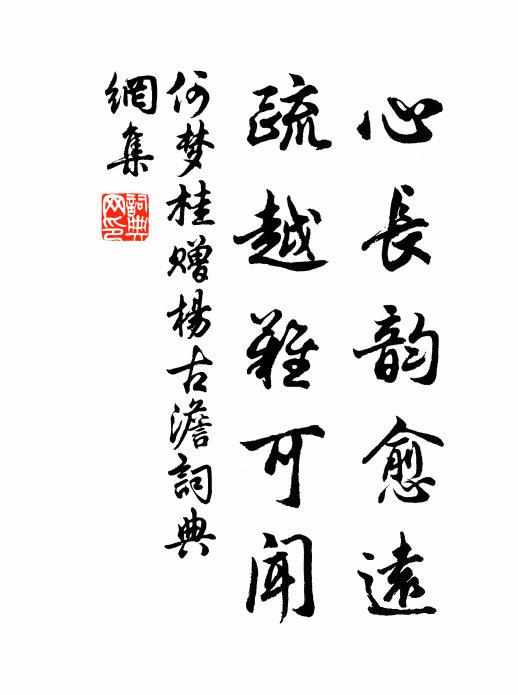 心長韵愈遠
疏越難可聞
何梦桂赠楊古澹詞典
網集
詞典
网印